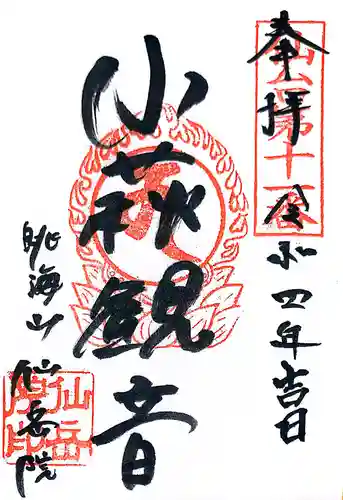 奉拝
令和四年吉日
小萩観音
眺海山 仙岳院